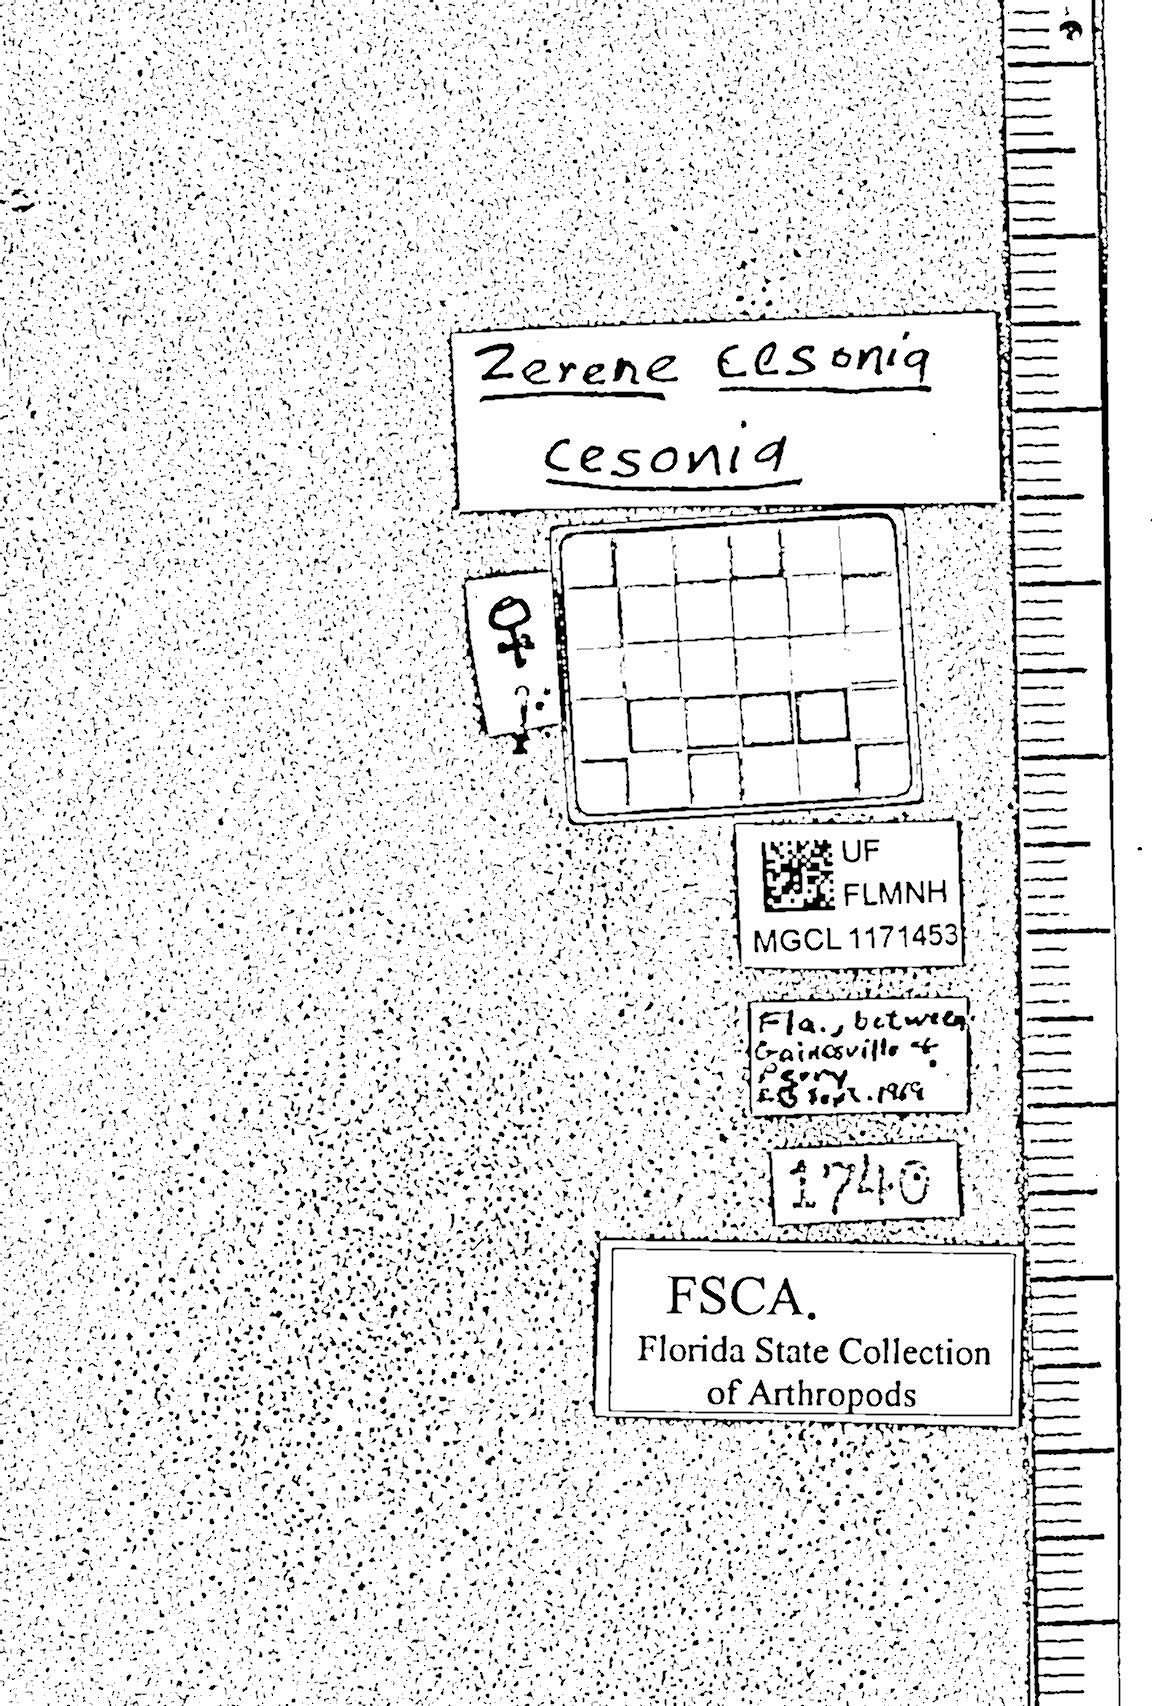 Zerene cesonia
cesonia
♀
UF
FLMNH
MGCL 1171453
Fla., between
Gainesville &
Perry
Sept. 1969
1740
FSCA.
Florida State Collection
of Arthropods